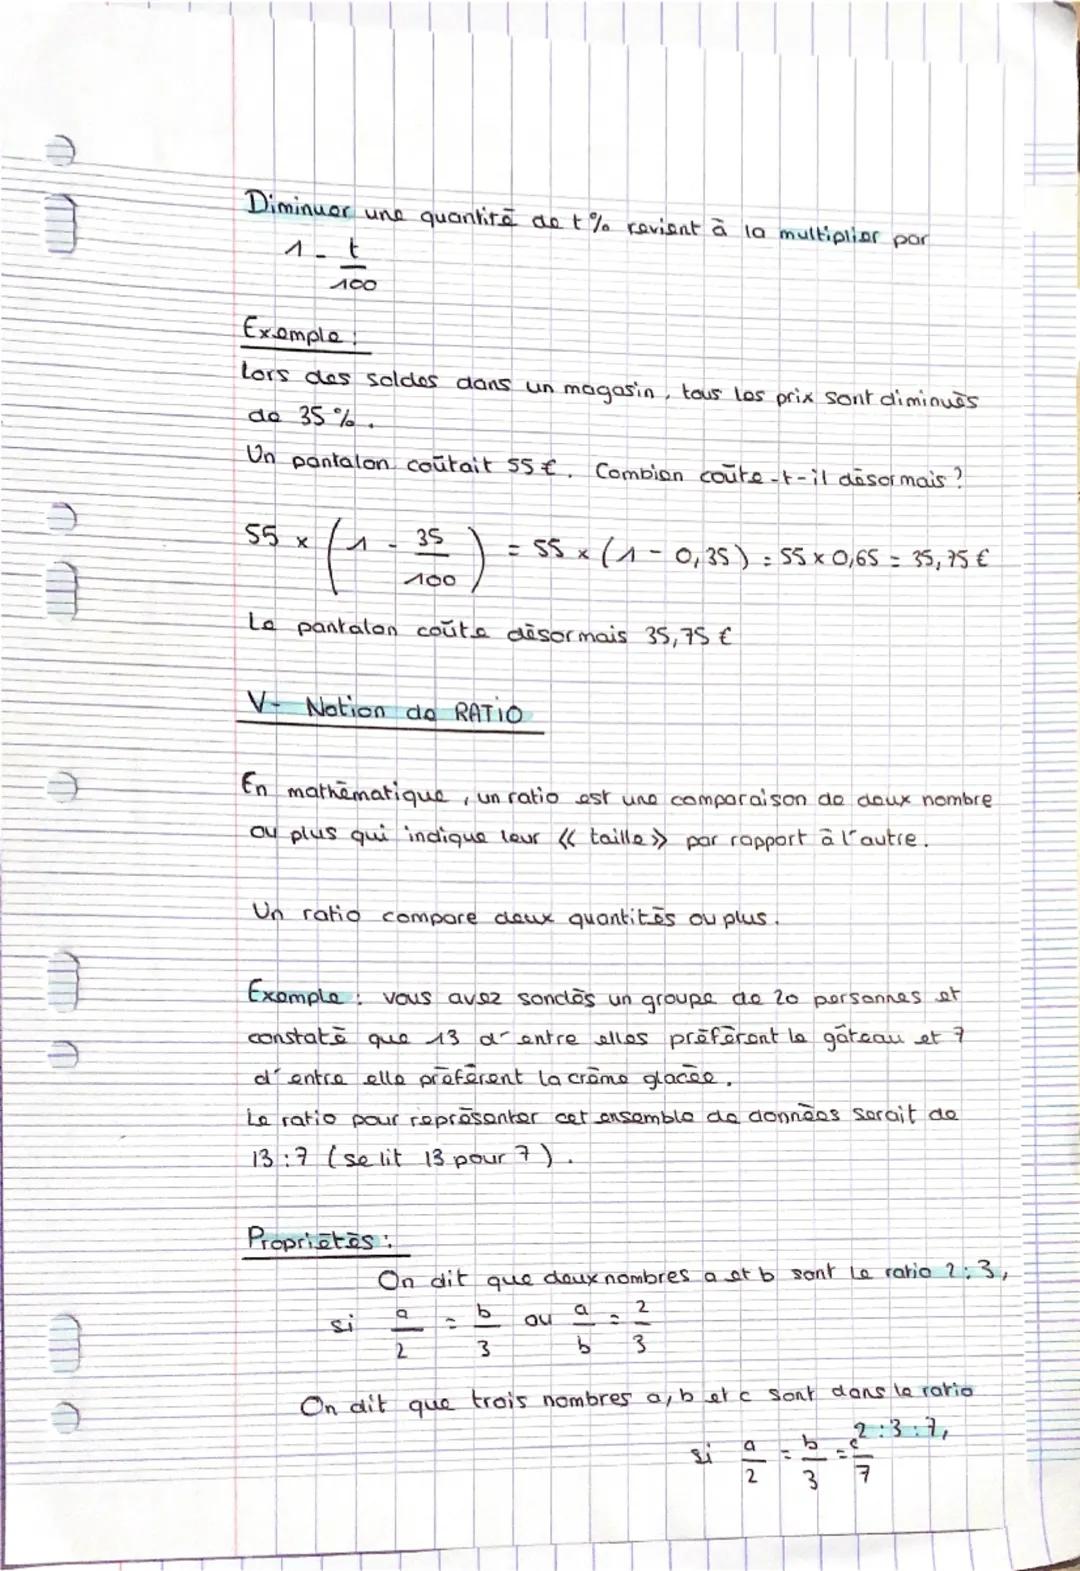 Diminuer une quantité de t% revient à la multiplier par
1 - t/100
Exemple :
Lors des soldes dans un magasin, tous les prix sont diminués
de 35 %.
Un pantalon coûtait 55 €. Combien coûte-t-il désormais ?
55 × (1 - 35/100) = 55 × (1 - 0,35) = 55 × 0,65 = 35,75 €
Le pantalon coûte désormais 35,75 €
V- Notion de RATIO
En mathématique, un ratio est une comparaison de deux nombre
ou plus qui indique leur « taille » par rapport à l'autre.
Un ratio compare deux quantités ou plus.
Exemple : vous avez sondés un groupe de 20 personnes et
constaté que 13 d'entre elles préfèrent le gâteau et 7
d'entre elle préfèrent la crème glacée.
Le ratio pour représenter cet ensemble de données serait de
13:7 (se lit 13 pour 7).
Propriétés :
On dit que deux nombres a et b sont le ratio 2:3,
si a/2 = b/3 ou a/b = 2/3
On dit que trois nombres a, b et c sont dans le ratio
2:3:7,
si a/2 = b/3 = c/7